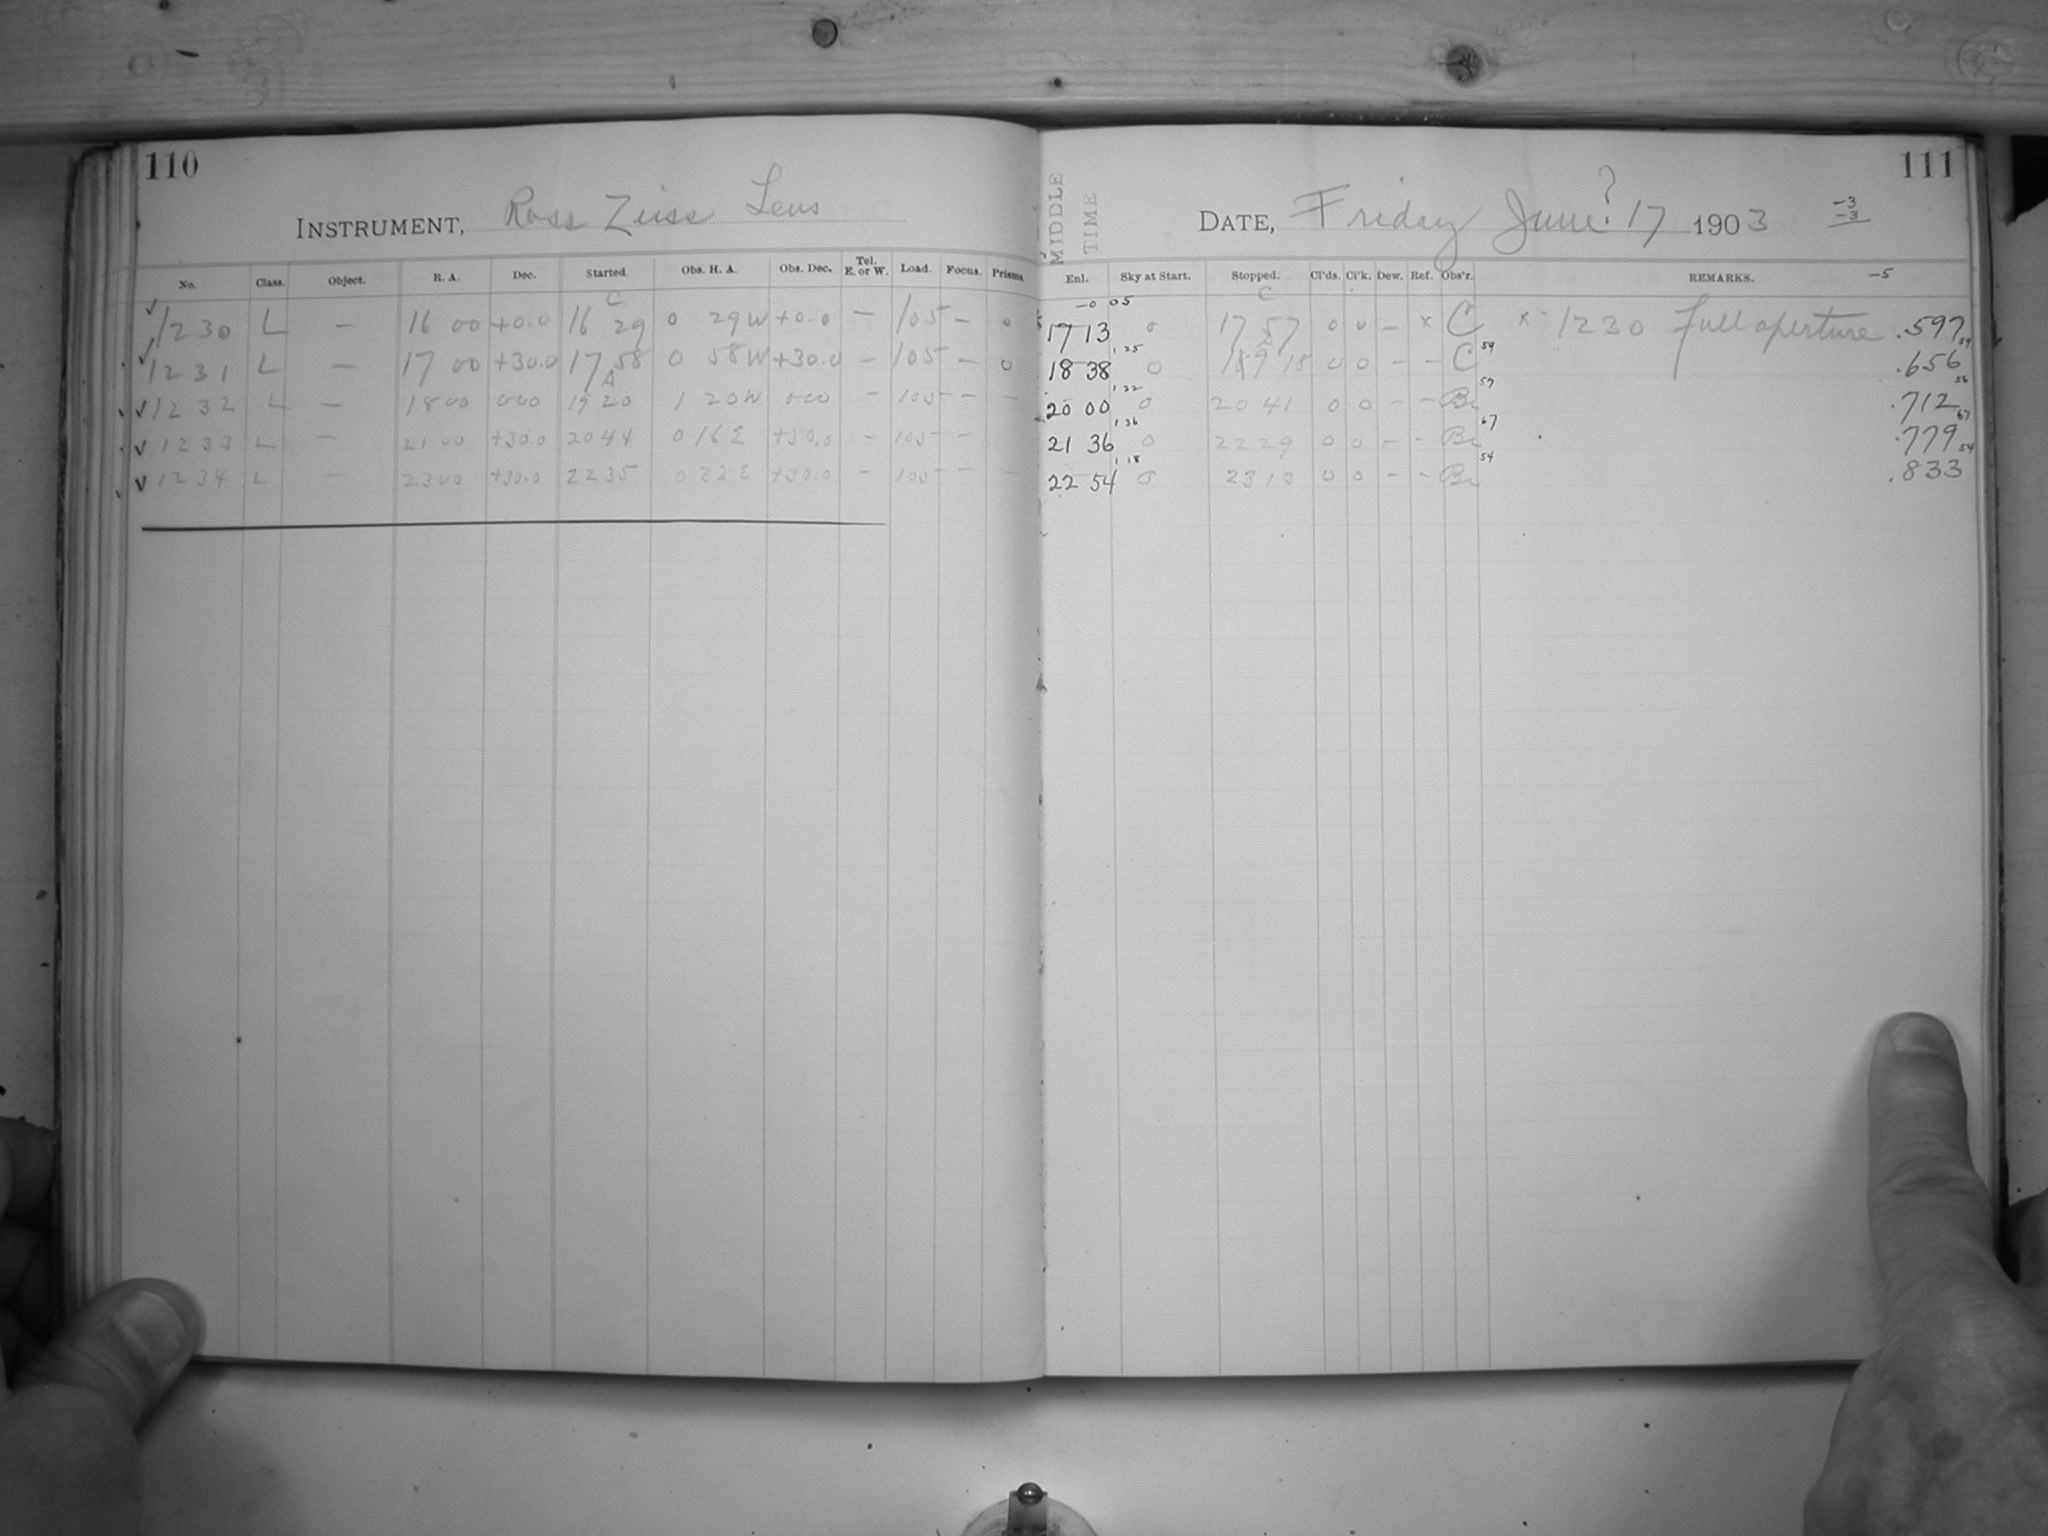 110
INSTRUMENT, Ross Zeiss Lens
No. Class. Object. R. A. Dec. Started. Obs. H. A. Obs. Dec. Tel. E. or W. Load. Focus. Prisms.
C
✓ 1230 L — 16 00 +0.0 16 29 0 29W +0.0 — 105 — 0
✓ 1231 L — 17 00 +30.0 17 58 0 58W +30.0 — 105 — 0
A
✓ 1232 L — 18 00 000 19 20 1 20W 000 — 105 — —
✓ 1233 L — 21 00 +30.0 20 44 0 16E +30.0 — 105 —
✓ 1234 L — 23 00 +30.0 22 35 0 32E +30.0 — 105 — —
111
MIDDLE TIME
DATE, Friday June? 17 1903
-3
-3
Enl. Sky at Start. Stopped. Cl'ds. Cl'k. Dew. Ref. Obs'r. REMARKS. -5
-0 05 C
17 13 0 17 57 0 0 — x C x 1230 Full aperture .597
1,25 59 59
18 38 0 19 18 0 0 — — C .656
1,22 57 56
20 00 0 20 41 0 0 — — Bi .712
1 36 67 67
21 36 0 22 29 0 0 — — Bi .779
1 18 54 54
22 54 0 23 13 0 0 — — Bi .833